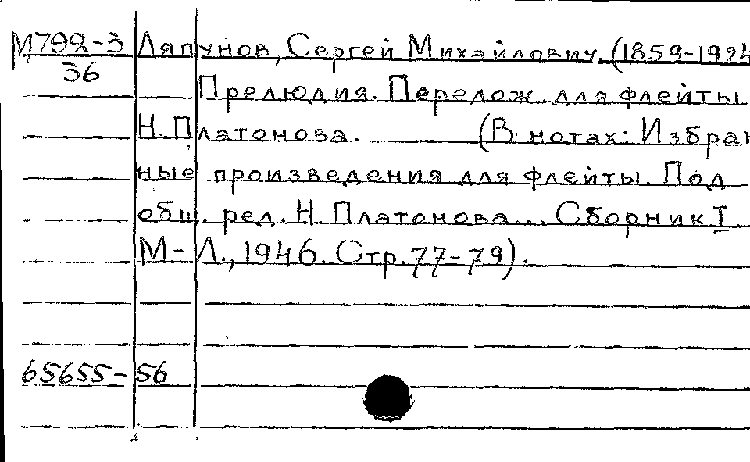 М792-3 Ляпунов, Сергей Михайлович (1859-1924
36
Прелюдия. Перелож. для флейты
Н. Платонова. (В нотах: Избран
ные произведения для флейты. Под
общ. ред. Н. Платонова... Сборник I
М-Л., 1946. Стр. 77-79).
65655-56